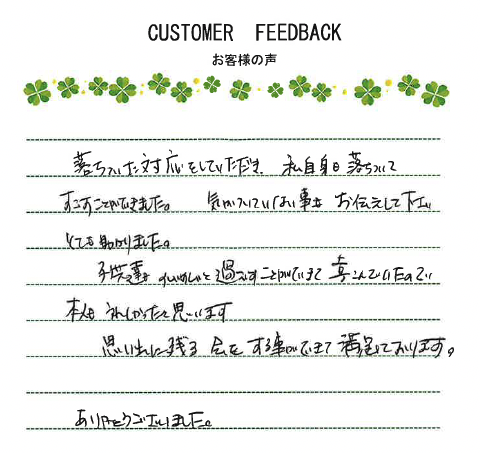 CUSTOMER FEEDBACK
お客様の声
落ちついた対応をしていただき、私自身も落ちついて
すごすことができました。 気がついていない事も お伝えして下さい
とても助かりました。
子供達も いいと過ごすことができて 喜んでいたので
本人も うれしかったと思います
思い出に残る 会を する事ができて 満足しております。
ありがとうございました。